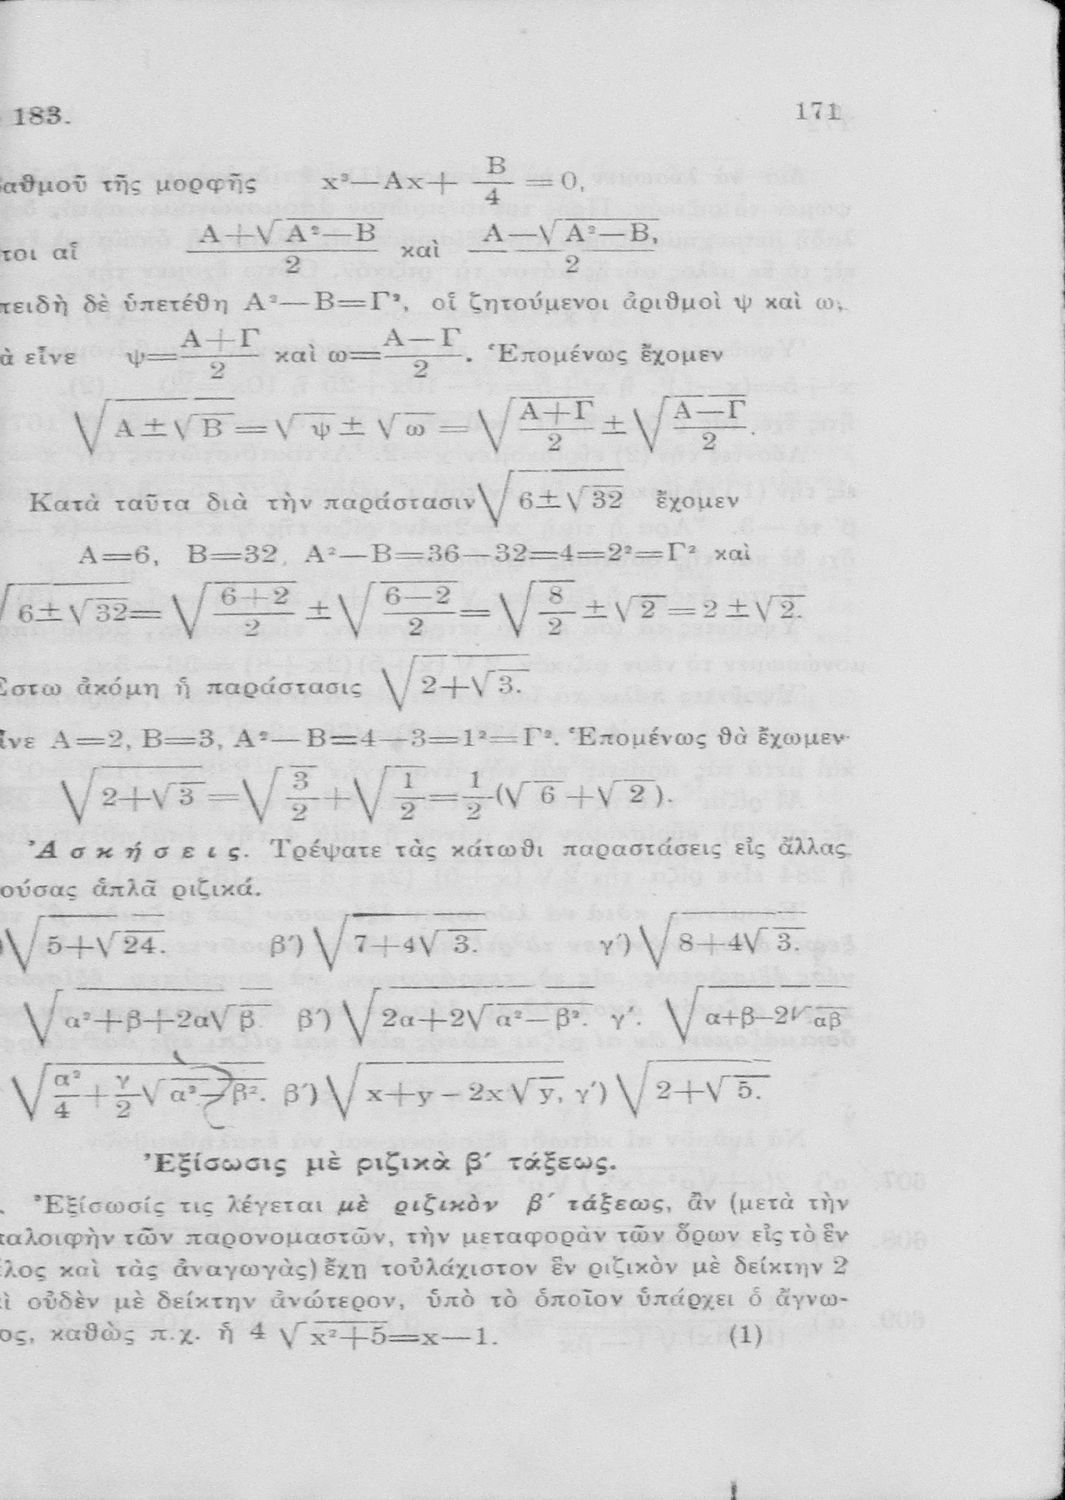 183. 171
αθμοῦ τῆς μορφῆς x²—Ax+ B/4 =0,
τοι αἵ (A+√(A²—B))/2 καὶ (A—√(A²—B))/2,
πειδὴ δὲ ὑπετέθη A²—B=Γ², οἵ ζητούμενοι ἀριθμοὶ ψ καὶ ω,
ὰ εἶνε ψ=(A+Γ)/2 καὶ ω=(A—Γ)/2. Ἑπομένως ἔχομεν
√(A±√B)=√ψ±√ω=√((A+Γ)/2)±√((A—Γ)/2).
Κατὰ ταῦτα διὰ τὴν παράστασιν √(6±√32) ἔχομεν
A=6, B=32, A²—B=36—32=4=2²=Γ² καὶ
√(6±√32)=√((6+2)/2)±√((6—2)/2)=√(8/2)±√2=2±√2.
Εστω ἀκόμη ἡ παράστασις √(2+√3.
ἶνε A=2, B=3, A²—B=4—3=1²=Γ². Ἑπομένως θὰ ἔχωμεν
√(2+√3)=√(3/2)+√(1/2)=1/2(√6+√2).
Ἀσκήσεις. Τρέψατε τὰς κάτωθι παραστάσεις εἰς ἄλλας
ούσας ἁπλᾶ ριζικά.
)√(5+√24. β′) √(7+4√3. γ′) √(8+4√3.
√(α²+β+2α√β β′) √(2α+2√(α²—β². γ′. √(α+β—2√αβ
√(α²/4+γ/2√(α²—β². β′) √(x+y—2x√y, γ′) √(2+√5.
Ἐξίσωσις μὲ ριζικὰ β′ τάξεως.
. Ἐξίσωσίς τις λέγεται μὲ ριζικὸν β′ τάξεως, ἂν (μετὰ τὴν
παλοιφὴν τῶν παρονομαστῶν, τὴν μεταφορὰν τῶν ὅρων εἰς τὸ ἓν
έλος καὶ τὰς ἀναγωγὰς) ἔχῃ τοὐλάχιστον ἓν ριζικὸν μὲ δείκτην 2
αὶ οὐδὲν μὲ δείκτην ἀνώτερον, ὑπὸ τὸ ὁποῖον ὑπάρχει ὁ ἄγνω-
ος, καθὼς π.χ. ἡ 4 √(x²+5)=x—1. (1)